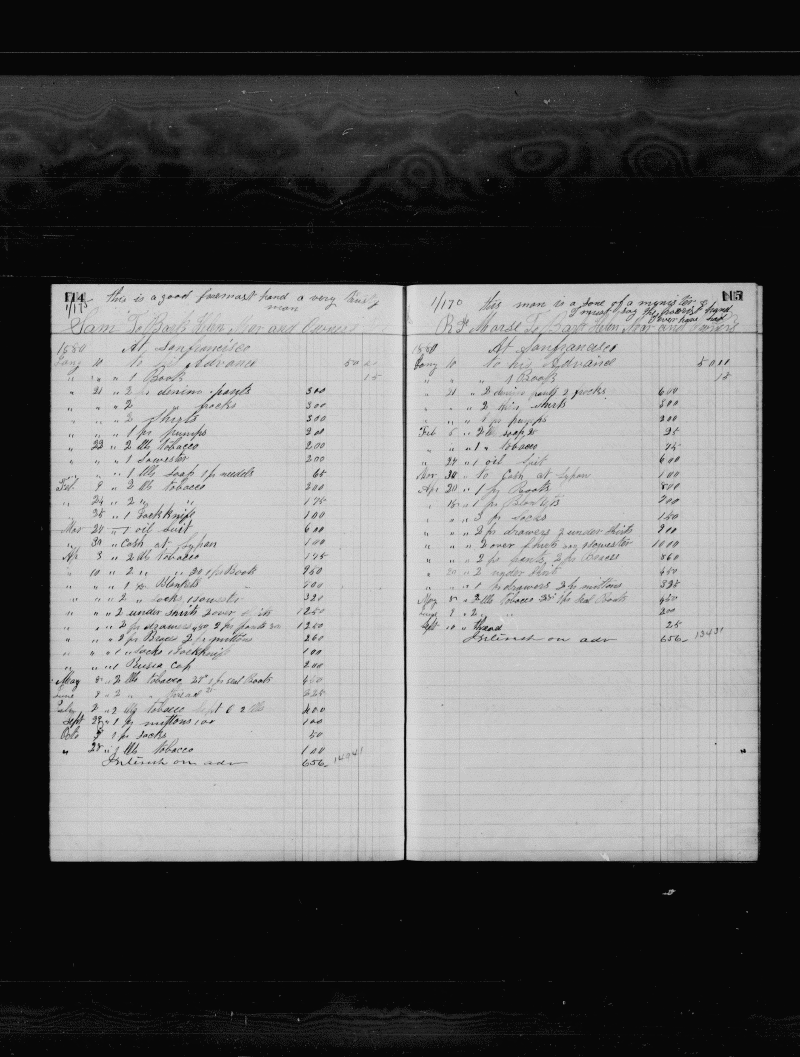 114
1/175 this is a good foremast hand a very trusty
man
Sam To Bark Helen Mar and Owners
1880 At Sanfrancisco
Jany 10 to Advance 50 00
" " " 1 Book 15
" 21 " 2 pr denim pants 300
" " " 2 frocks 300
" " " 2 Shirts 300
" " " 1 pr pumps 200
" 23 " 2 lbs tobacco 200
" " " 1 Sowester 200
" " " 1 lb soap 1 p needls 65
Feb 9 " 2 lbs tobacco 200
" 24 " 2 " " 175
" 25 " 1 Jackknife 100
Mar 24 " 1 oil Suit 600
" 30 " Cash at 100
Apr 3 " 2 lbs Tobacco 175
" 10 " 2 " " 1 pr Boots 950
" " " 1 pr Blankets 700
" " " 2 " socks 1 sowester 320
" " " 2 under shirts 2 over shirts 1250
" " " 2 pr drawers 2 pr pants 1250
" " " 2 pr Braces 2 pr mittons 260
" " " 1 " Socks 1 Jackknife 100
" " " 1 Cap 200
May 8 " 2 lbs tobacco 1 pr seal Boots
June 9 " 2 " " thread 25 225
2 " 2 lbs tobacco Sept 6 2 lbs 400
Sept 28 " 1 pr mittons 100
Octo 9 " 1 pr socks 50
" 28 " 1 lb tobacco 100
Interest on adv 656 14041
115
1/170 this man is a sone of a mynister &
I must say the poorest hand
I ever have had
R H Morse To Bark Helen Mar and Owners
1880 At Sanfrancisco
Jany 10 to his Advance 50 00
" " 1 Book 15
" 21 " 2 denim pants 2 frocks 600
" " " 2 shirts 300
" " " 1 pr pumps 200
Feb 6 " 2 lb soap 25 25
" " " 1 " tobacco 75
" 24 " 1 oil Suit 600
Mar 30 " To Cash at 100
Apr 20 " 1 pr Boots 800
" 15 " 1 pr Blankets 700
" " " 3 pr Socks 150
" " " 2 pr drawers 2 under shirts 900
" " " 2 over shirts sowester 1010
" " " 2 pr pants 2 pr Braces 860
" " 2 under shirt 450
" " " 1 pr drawers 2 pr mittons 325
May 8 " 2 lbs Tobacco 1 pr seal Boots
June 9 " 2 " " 200
Sept 10 " thread 25
Interest on adv 656 13431